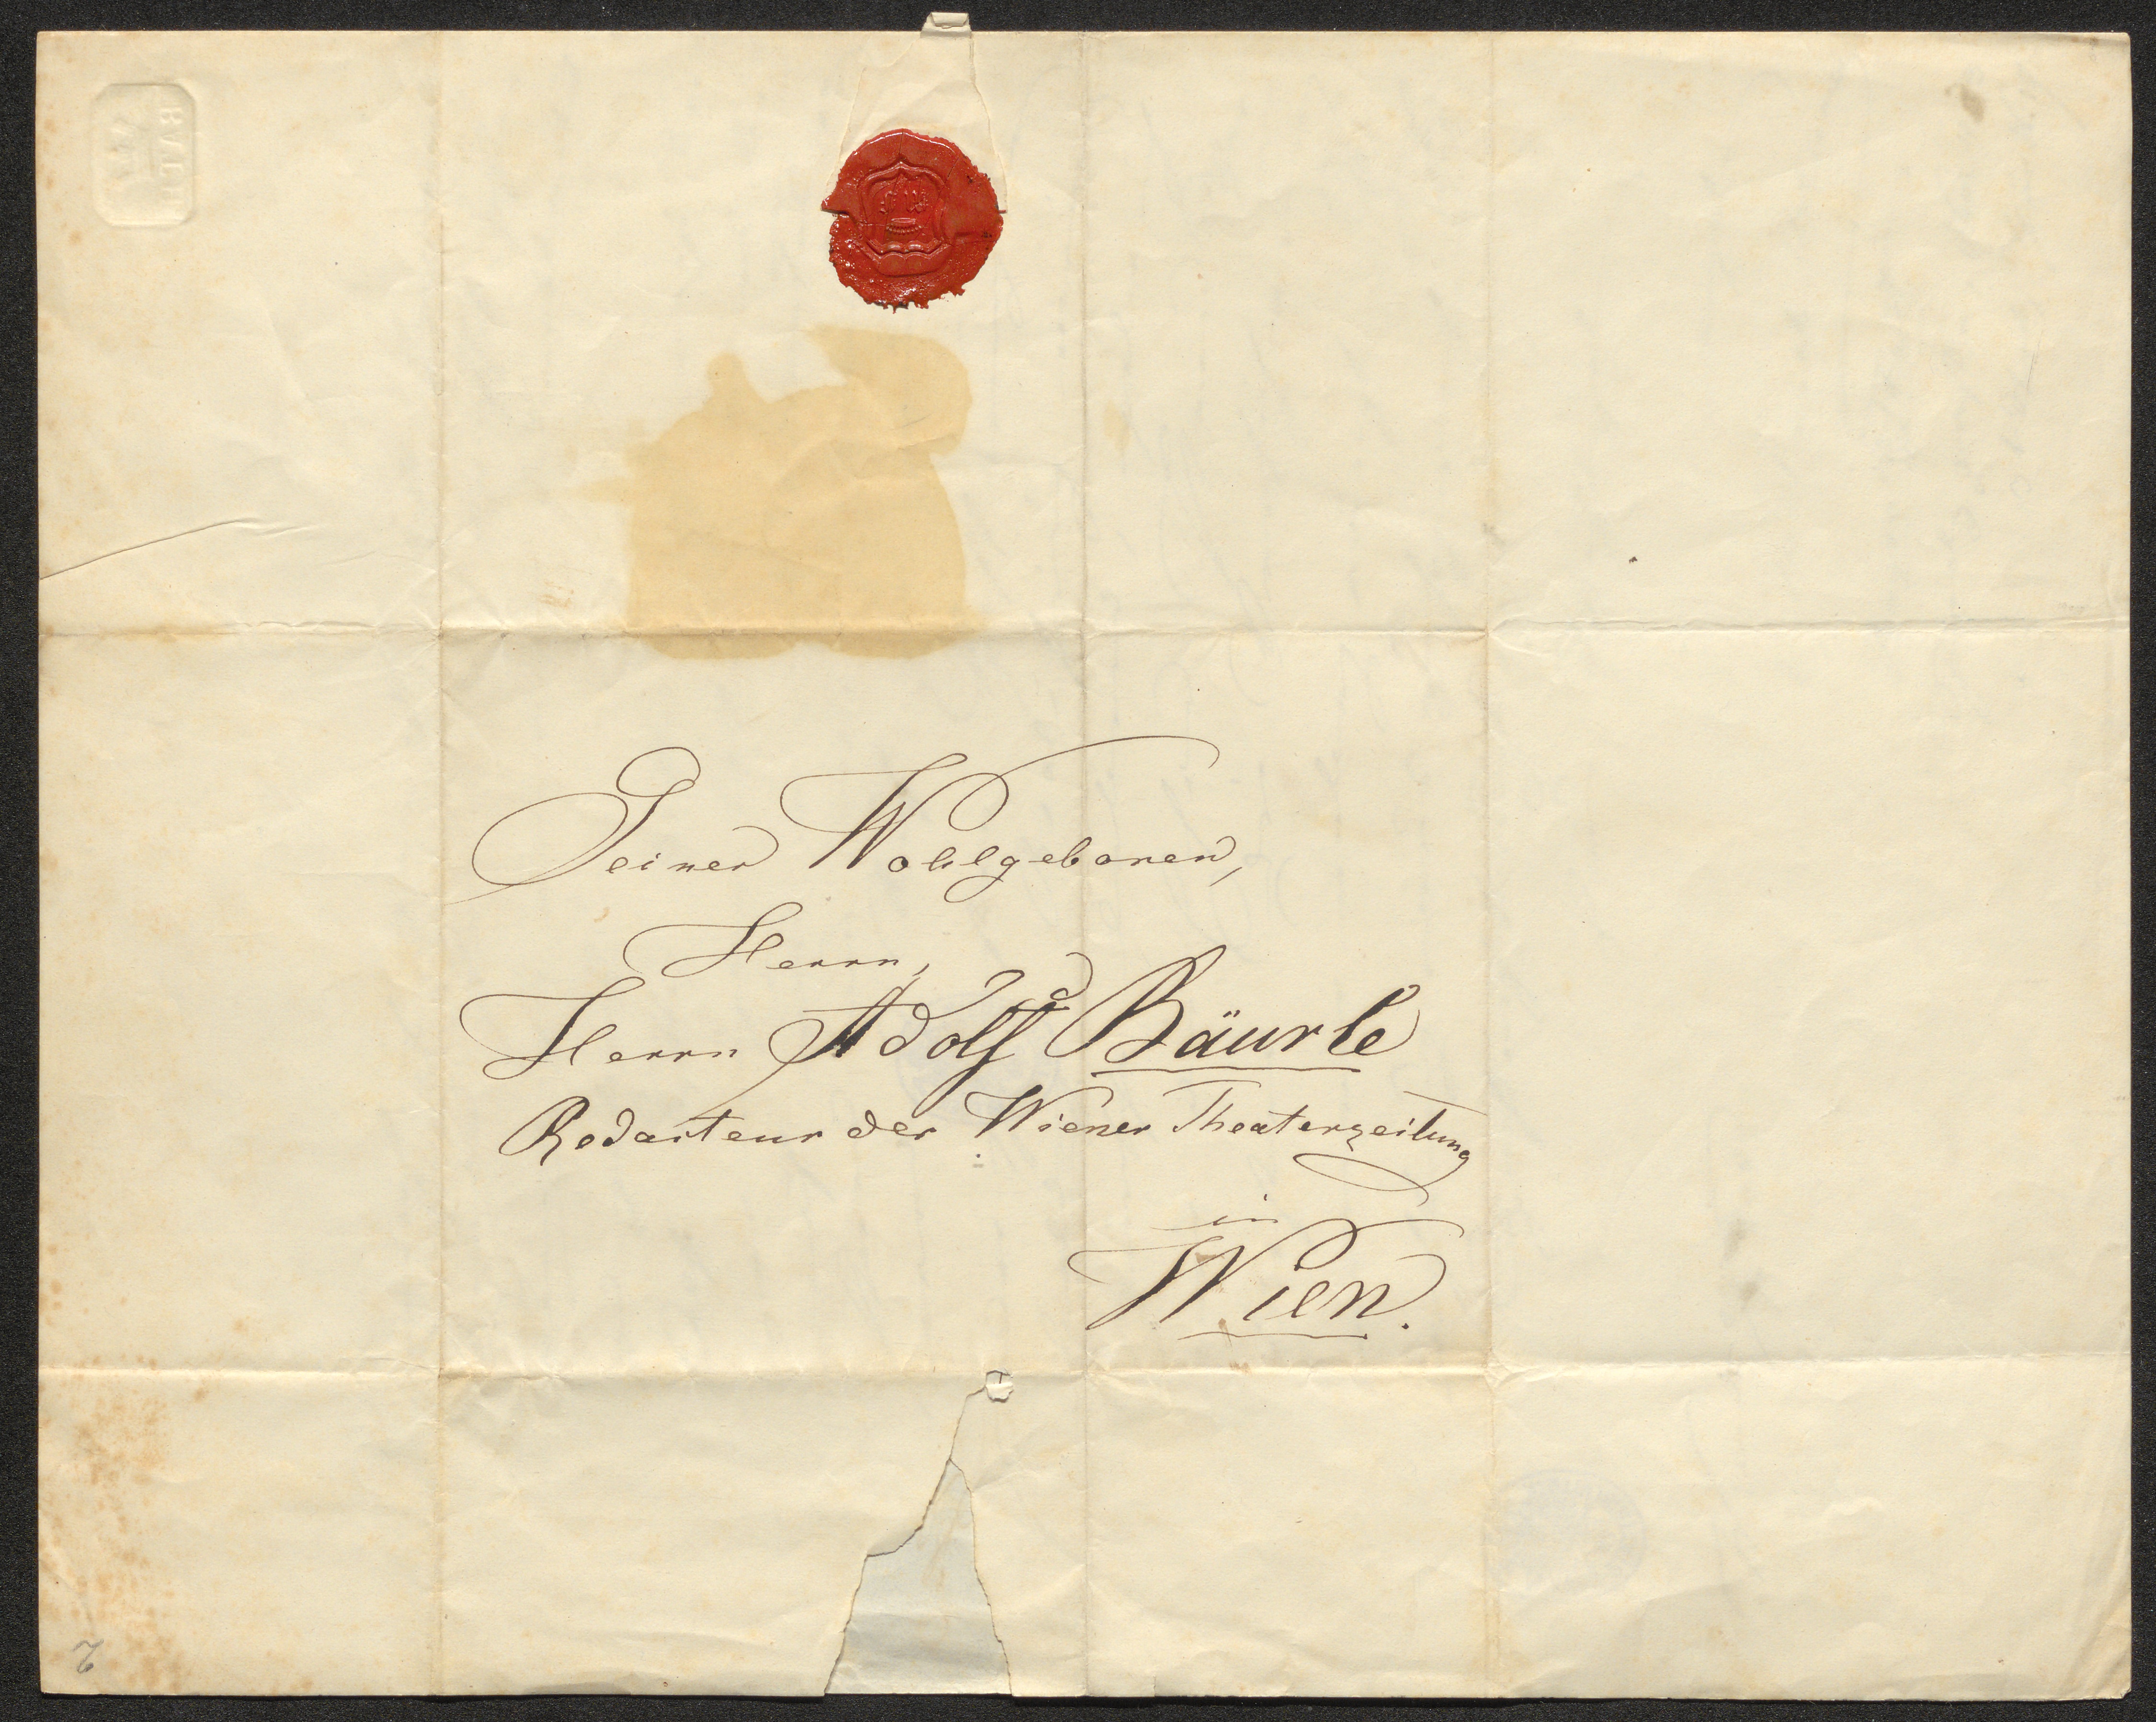 BATH
Seiner Wohlgeboren,
Herrn,
Herrn Adolf Bäurle
Redacteur der Wiener Theaterzeitung
in
Wien.